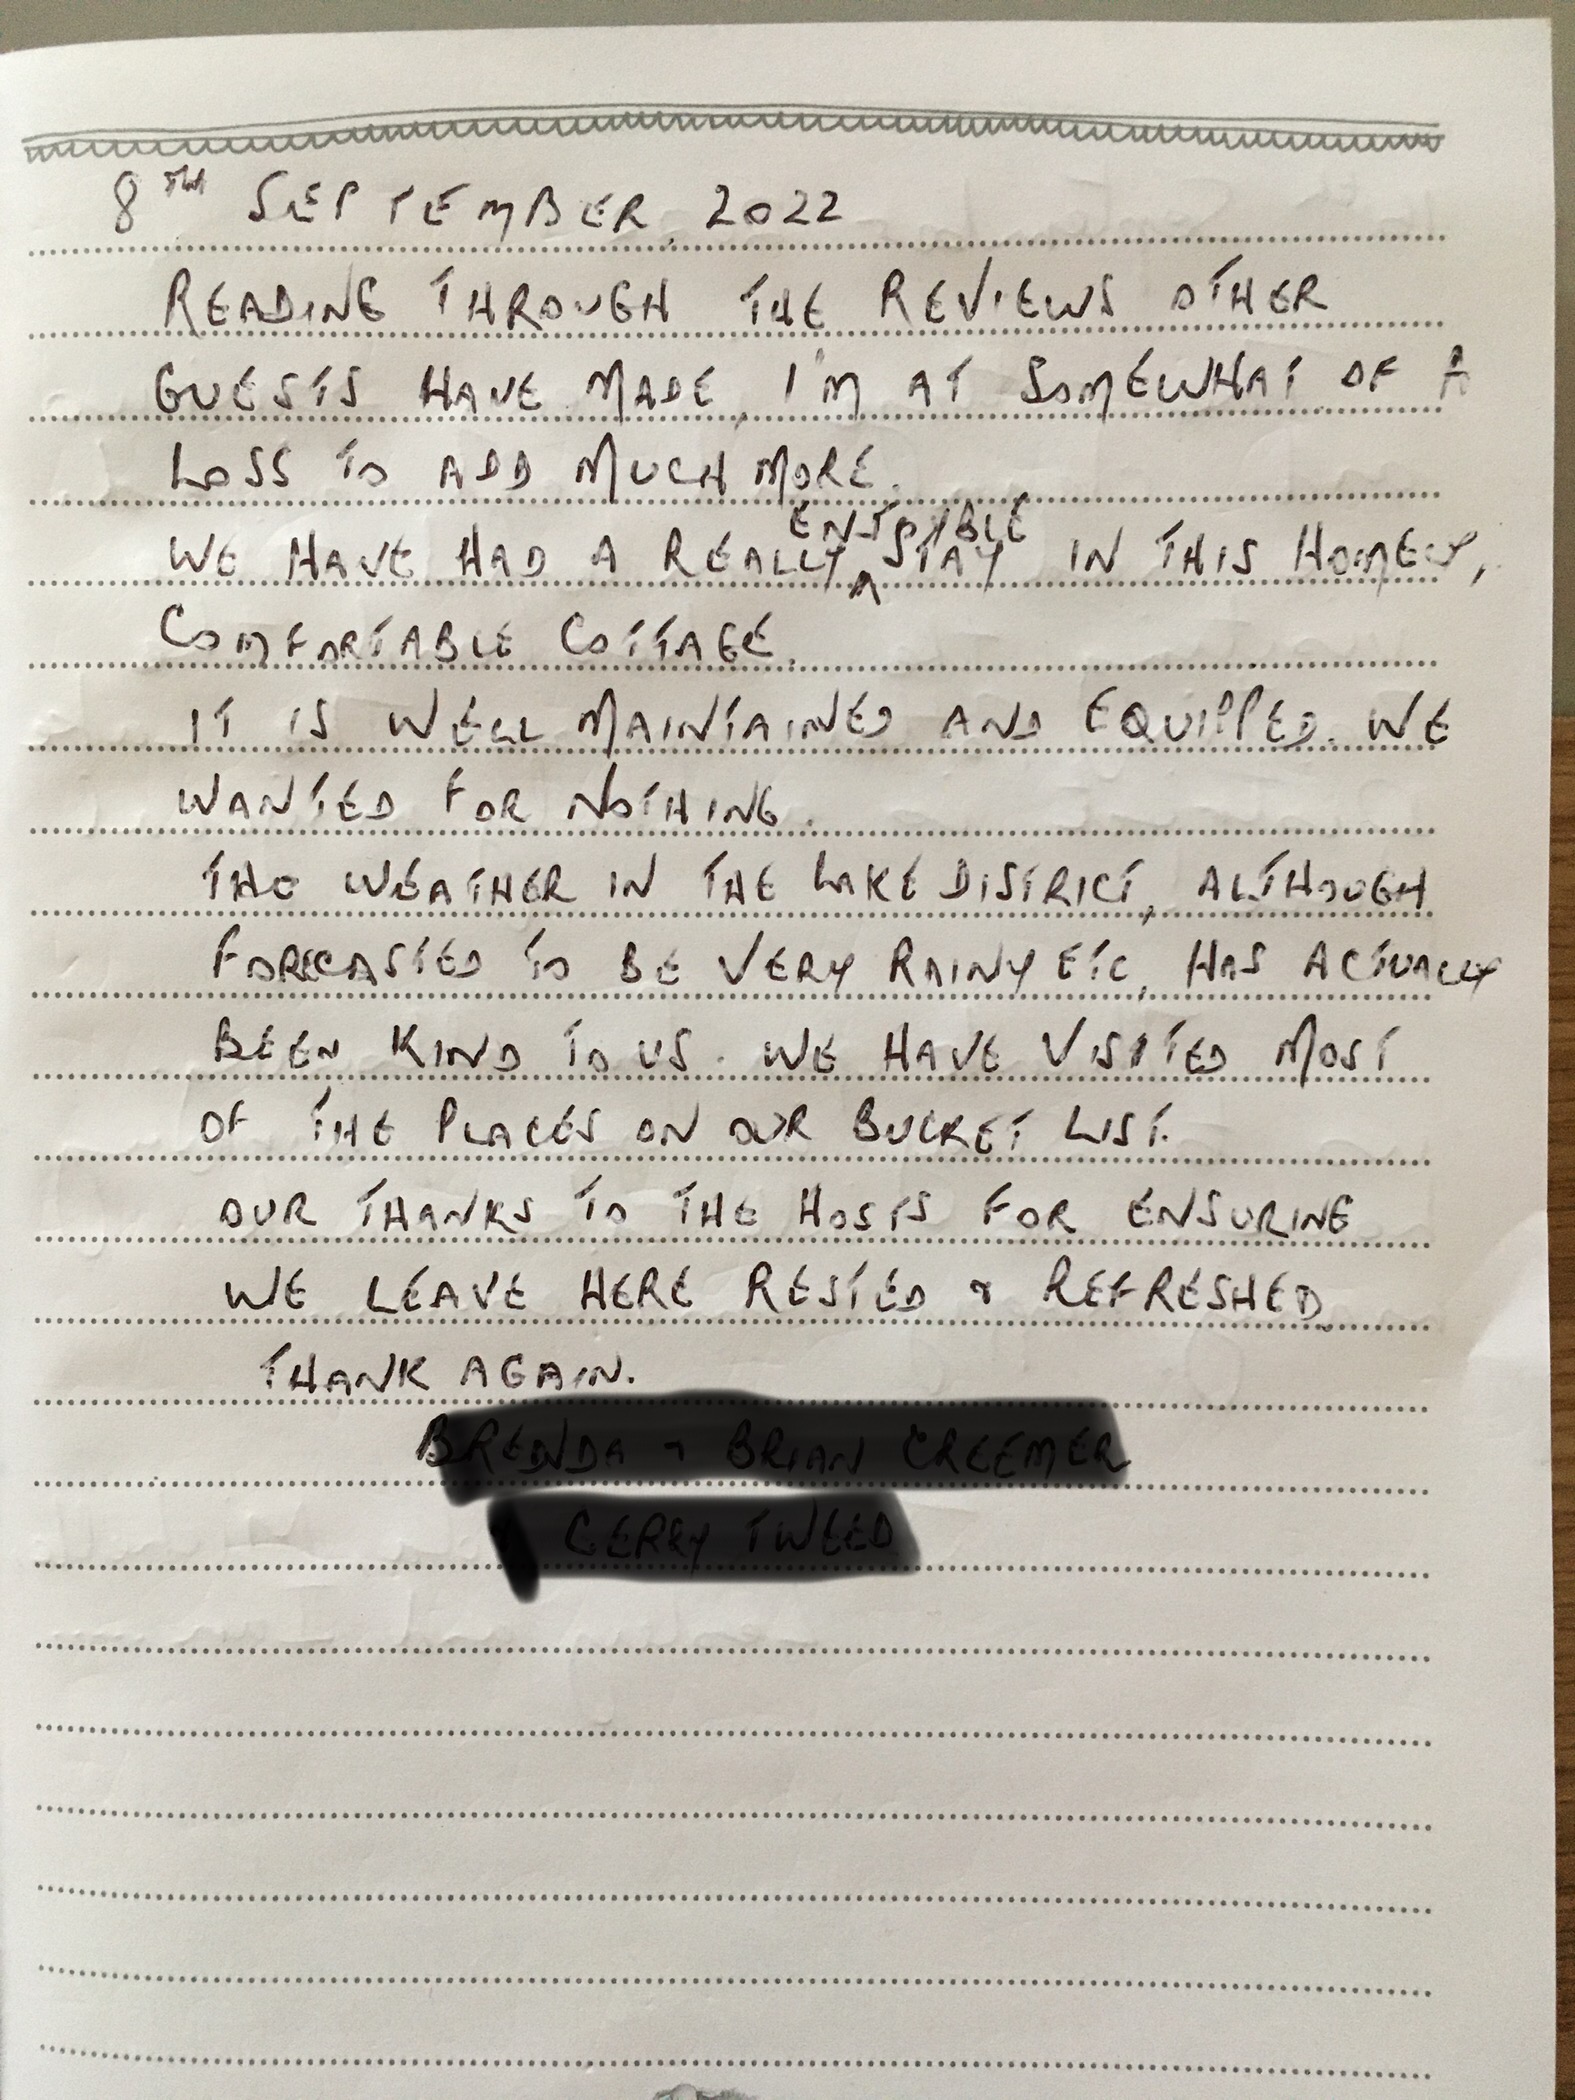 8TH SEPTEMBER, 2022
READING THROUGH THE REVIEWS OTHER
GUESTS HAVE MADE, I'M AT SOMEWHAT OF A
LOSS TO ADD MUCH MORE.
WE HAVE HAD A REALLY ENJOYABLE STAY IN THIS HOMELY,
COMFORTABLE COTTAGE.
IT IS WELL MAINTAINED AND EQUIPPED. WE
WANTED FOR NOTHING.
THE WEATHER IN THE LAKE DISTRICT, ALTHOUGH
FORECASTED TO BE VERY RAINY ETC, HAS ACTUALLY
BEEN KIND TO US. WE HAVE VISITED MOST
OF THE PLACES ON OUR BUCKET LIST.
OUR THANKS TO THE HOSTS FOR ENSURING
WE LEAVE HERE RESTED & REFRESHED.
THANK AGAIN.